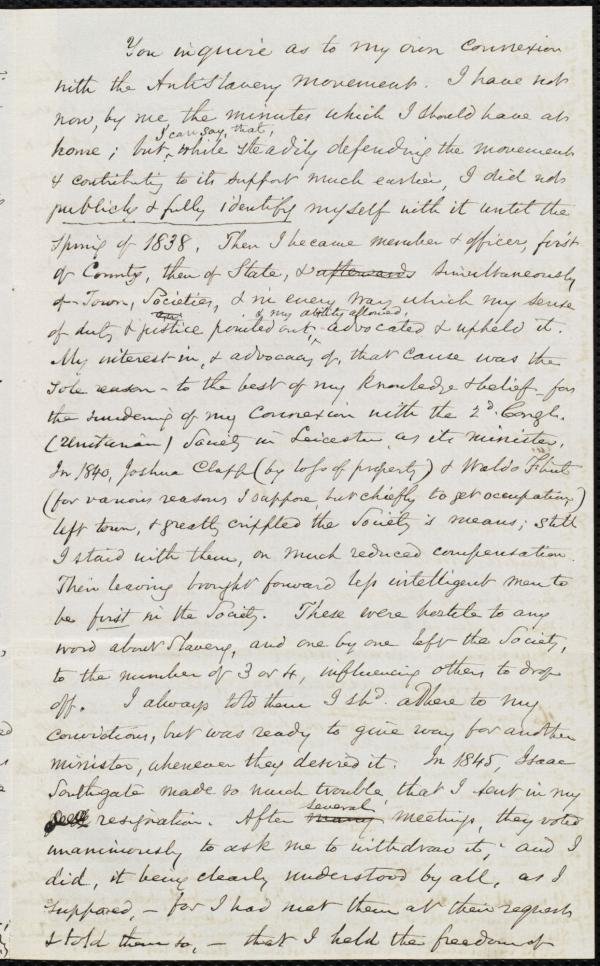 You inquire as to my own connexion
with the AntiSlavery movement. I have not
now, by me, the minutes which I should have at
I can say, that,
home; but, while steadily defending the movement
& contributing to its support much earlier, I did not
publicly & fully identify myself with it until the
Spring of 1838. Then I became member & officer, first
of County, then of State, & afterwards simultaneously
of Town, Societies, & in every way which my sense
& my ability allowed,
of duty & justice pointed out, advocated & upheld it.
My interest in, & advocacy of, that cause was the
sole reason - to the best of my knowledge & belief - for
the sundering of my connexion with the 2d. Congl.
(Unitarian) Society in Leicester, as its minister.
In 1840, Joshua Clapp (by loss of property) & Waldo Flint
(for various reasons I suppose, but chiefly to get occupation)
left town, & greatly crippled the Society's means; still
I staid with them, on much reduced compensation.
Their leaving brought forward less intelligent men to
be first in the Society. These were hostile to any
word about Slavery, and one by one left the Society,
to the number of 3 or 4, influencing others to drop
off. I always told them I shd. adhere to my
convictions, but was ready to give way for another
minister, whenever they desired it. In 1845, Isaac
Southgate made so much trouble, that I sent in my
resignation. After many several meetings, they voted
unanimously to ask me to withdraw it, and I
did, it being clearly understood by all, as I
supposed, - for I had met them at their request
& told them so, - that I held the freedom of